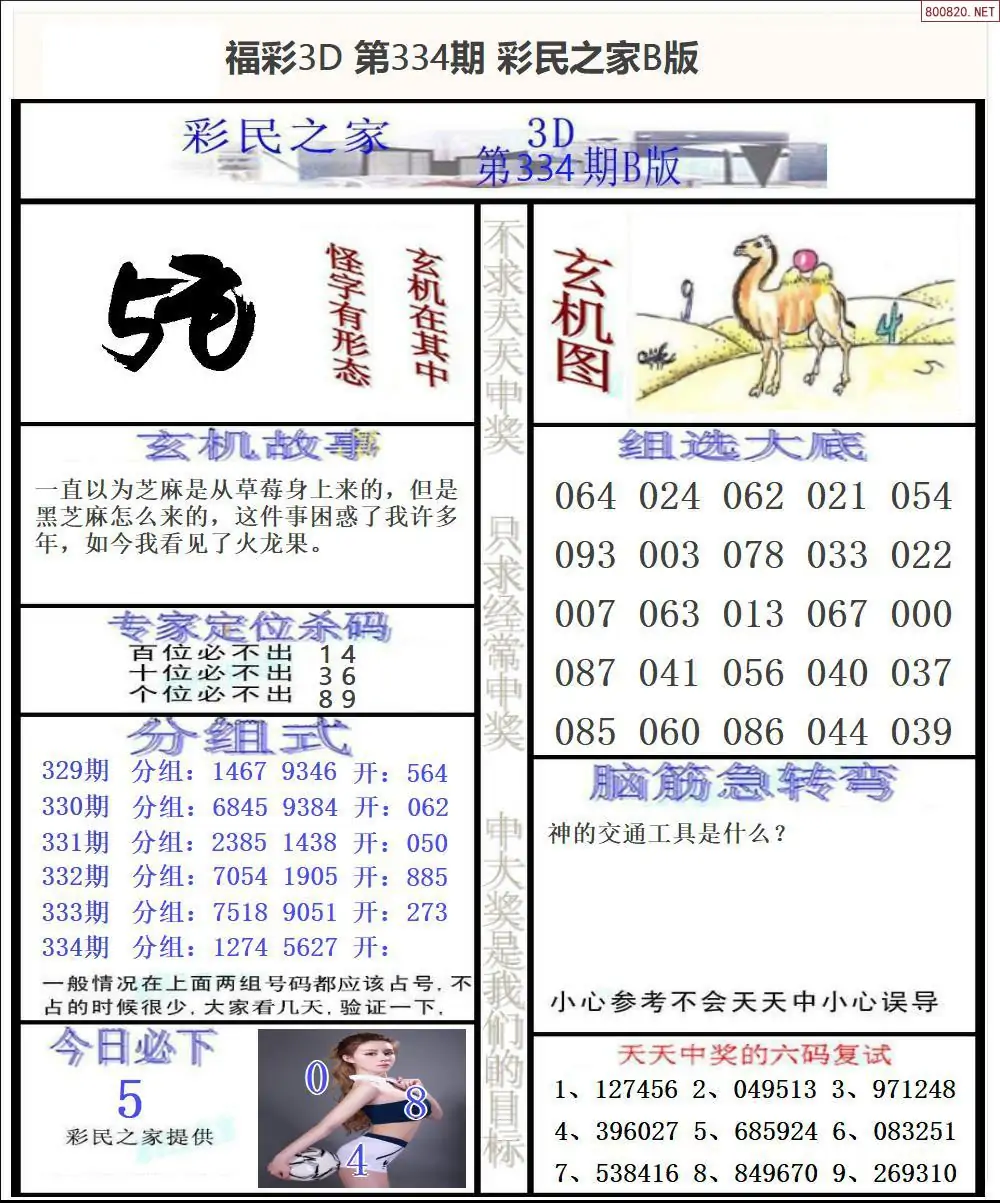 800820.NET
福彩3D 第334期 彩民之家B版
彩民之家
3D
第334期B版
怪字有形态
玄机在其中
不求天天中奖
只求经常中奖
中大奖是我们的目标
玄机图
玄机故事
一直以为芝麻是从草莓身上来的，但是
黑芝麻怎么来的，这件事困惑了我许多
年，如今我看见了火龙果。
专家定位杀码
百位必不出 1 4
十位必不出 3 6
个位必不出 8 9
分组式
329期 分组：1467 9346 开：564
330期 分组：6845 9384 开：062
331期 分组：2385 1438 开：050
332期 分组：7054 1905 开：885
333期 分组：7518 9051 开：273
334期 分组：1274 5627 开：
一般情况在上面两组号码都应该占号，不
占的时候很少，大家看几天，验证一下，
今日必下
5
彩民之家提供
0
8
4
组选大底
064 024 062 021 054
093 003 078 033 022
007 063 013 067 000
087 041 056 040 037
085 060 086 044 039
脑筋急转弯
神的交通工具是什么？
小心参考不会天天中小心误导
天天中奖的六码复试
1、127456 2、049513 3、971248
4、396027 5、685924 6、083251
7、538416 8、849670 9、269310